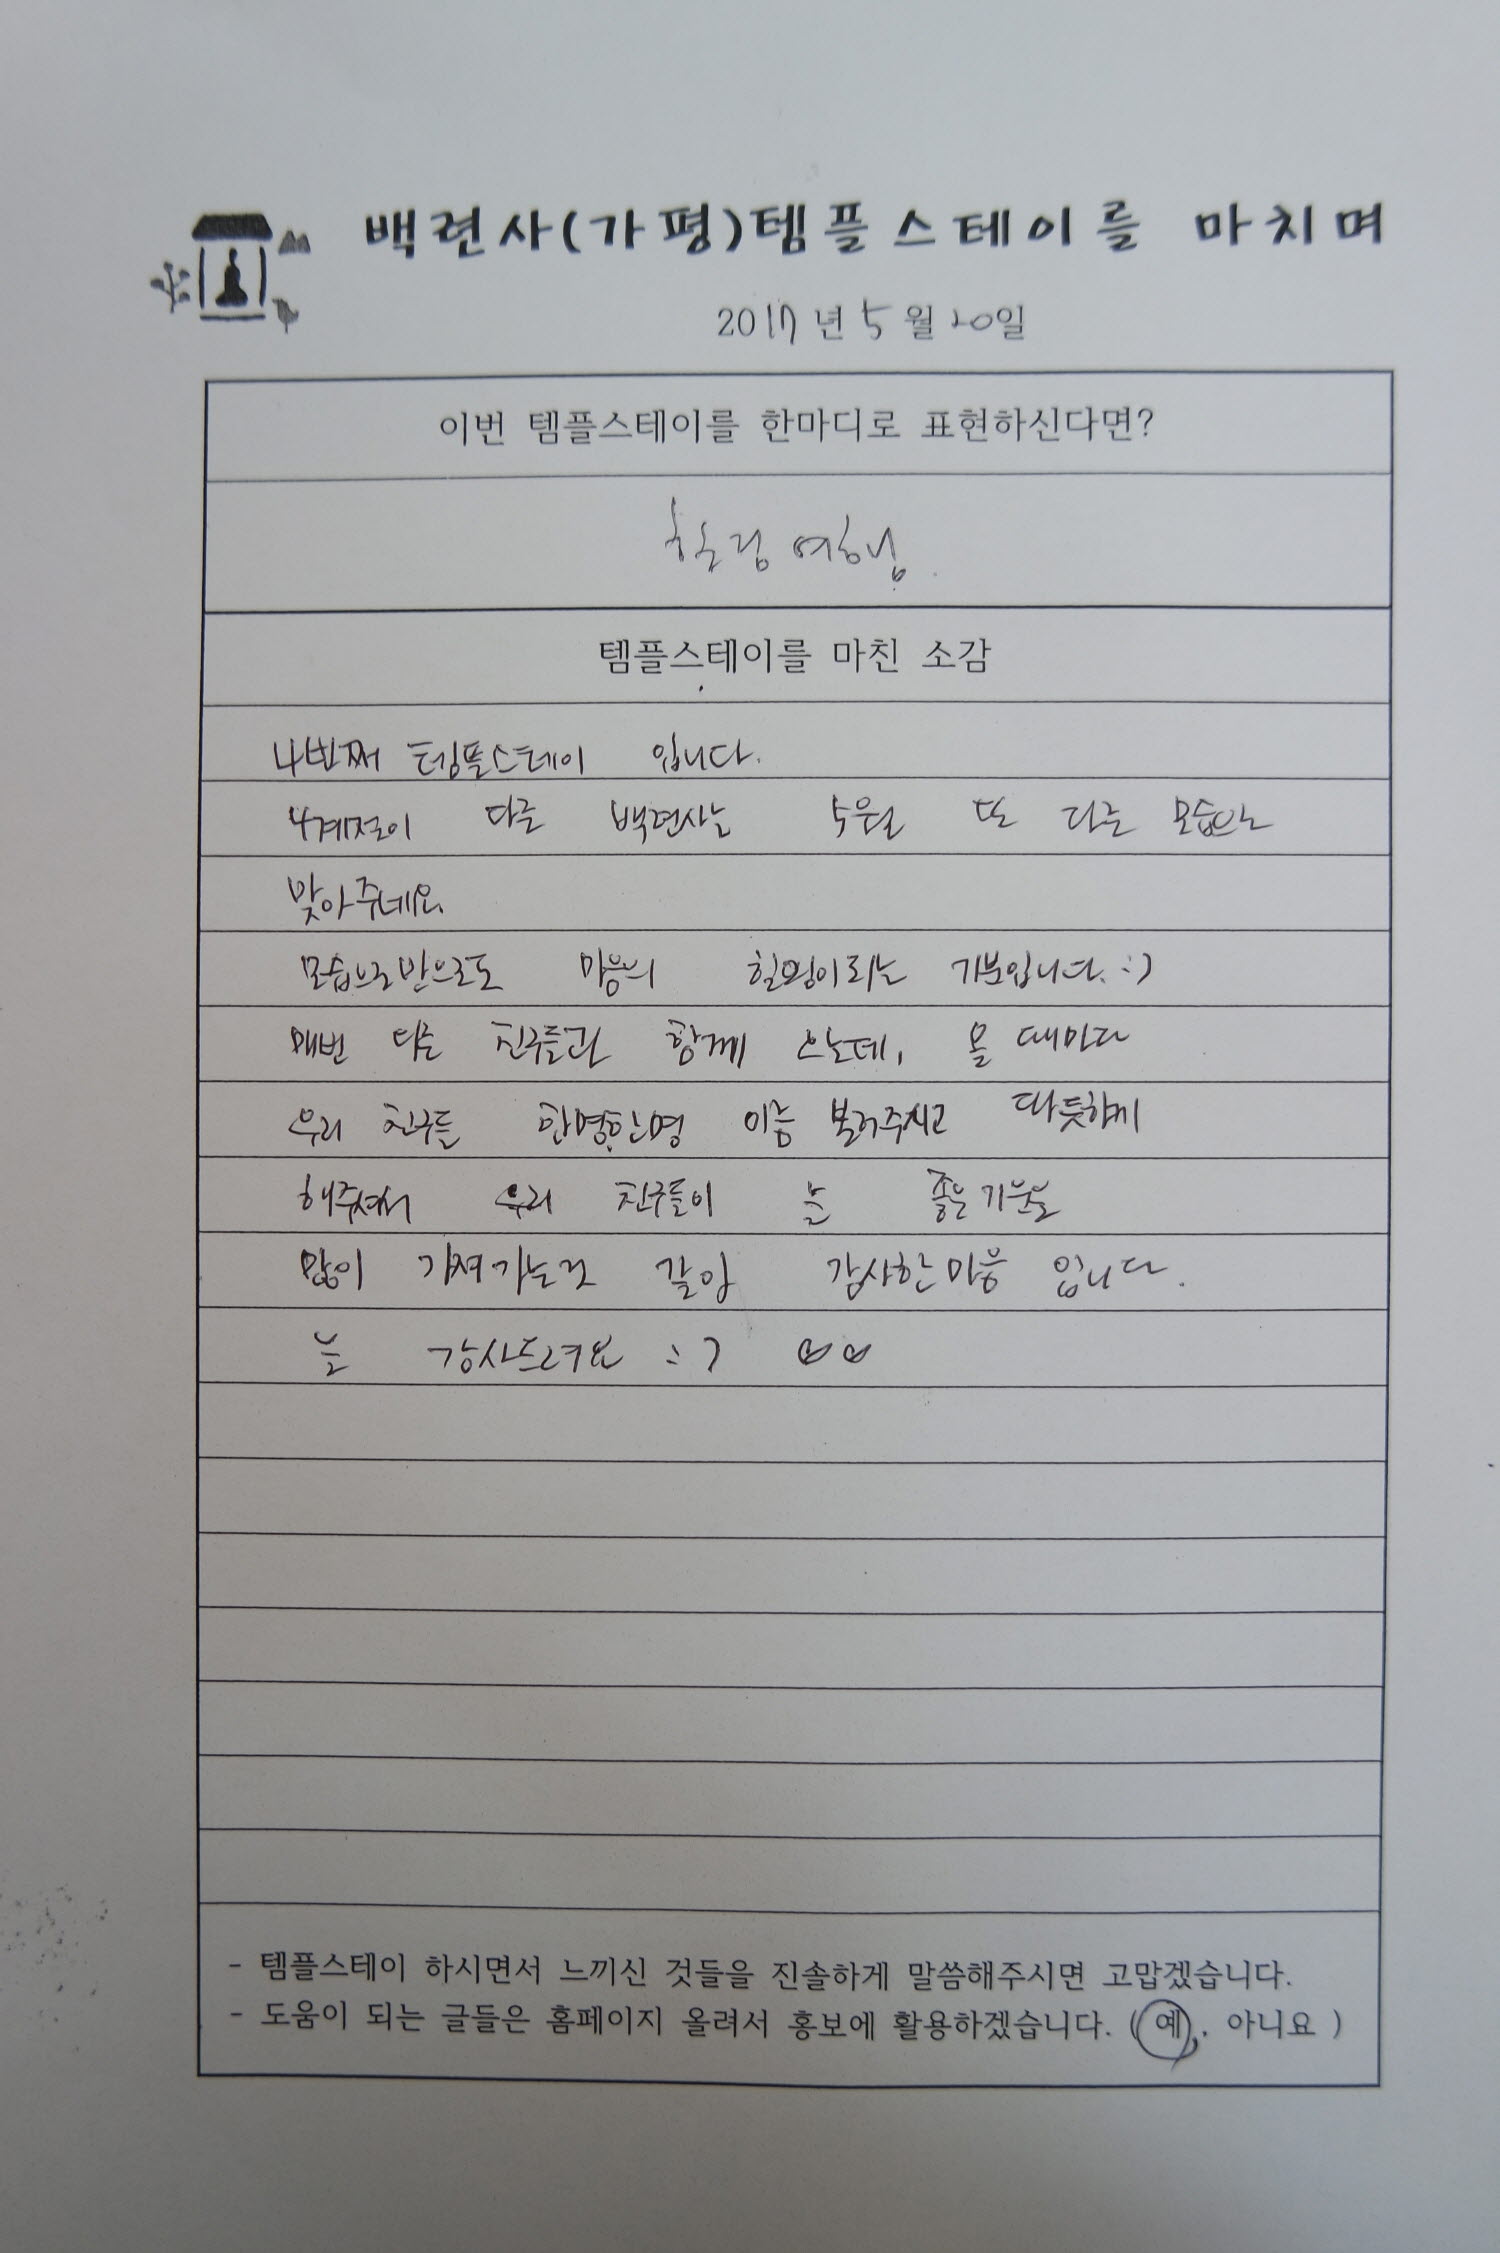 백련사(가평)템플스테이를 마치며
2017년 5월 20일
이번 템플스테이를 한마디로 표현하신다면?
힐링 여행
템플스테이를 마친 소감
4번째 템플스테이 입니다.
4계절이 다른 백련사는 5월 또 다른 모습으로
맞아주네요
마음의 힐링이라는 기분입니다. :)
매번 다른 친구들과 함께 오는데, 올 때마다
우리 친구들 한명한명 이름 불러주시고 따듯하게
해주셔서 우리 친구들이 늘 좋은 기운을
많이 가져가는거 같아 감사한 마음 입니다.
늘 감사드려요 :)
- 템플스테이 하시면서 느끼신 것들을 진솔하게 말씀해주시면 고맙겠습니다.
- 도움이 되는 글들은 홈페이지 올려서 홍보에 활용하겠습니다. ( 예, 아니요 )